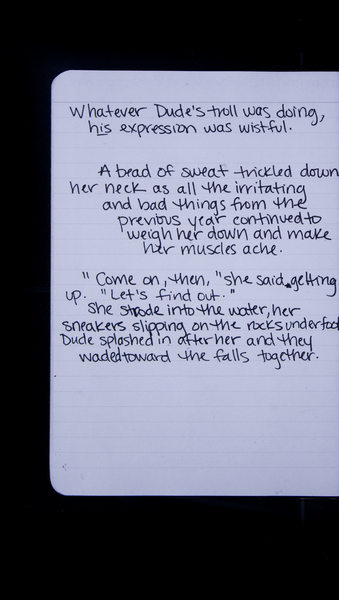 Whatever Dude's troll was doing,
his expression was wistful.
A bead of sweat trickled down
her neck as all the irritating
and bad things from the
previous year continued to
weigh her down and make
her muscles ache.
"Come on, then," she said, getting
up. "Let's find out."
She strode into the water, her
sneakers slipping on the rocks underfoot
Dude splashed in after her and they
waded toward the falls together.